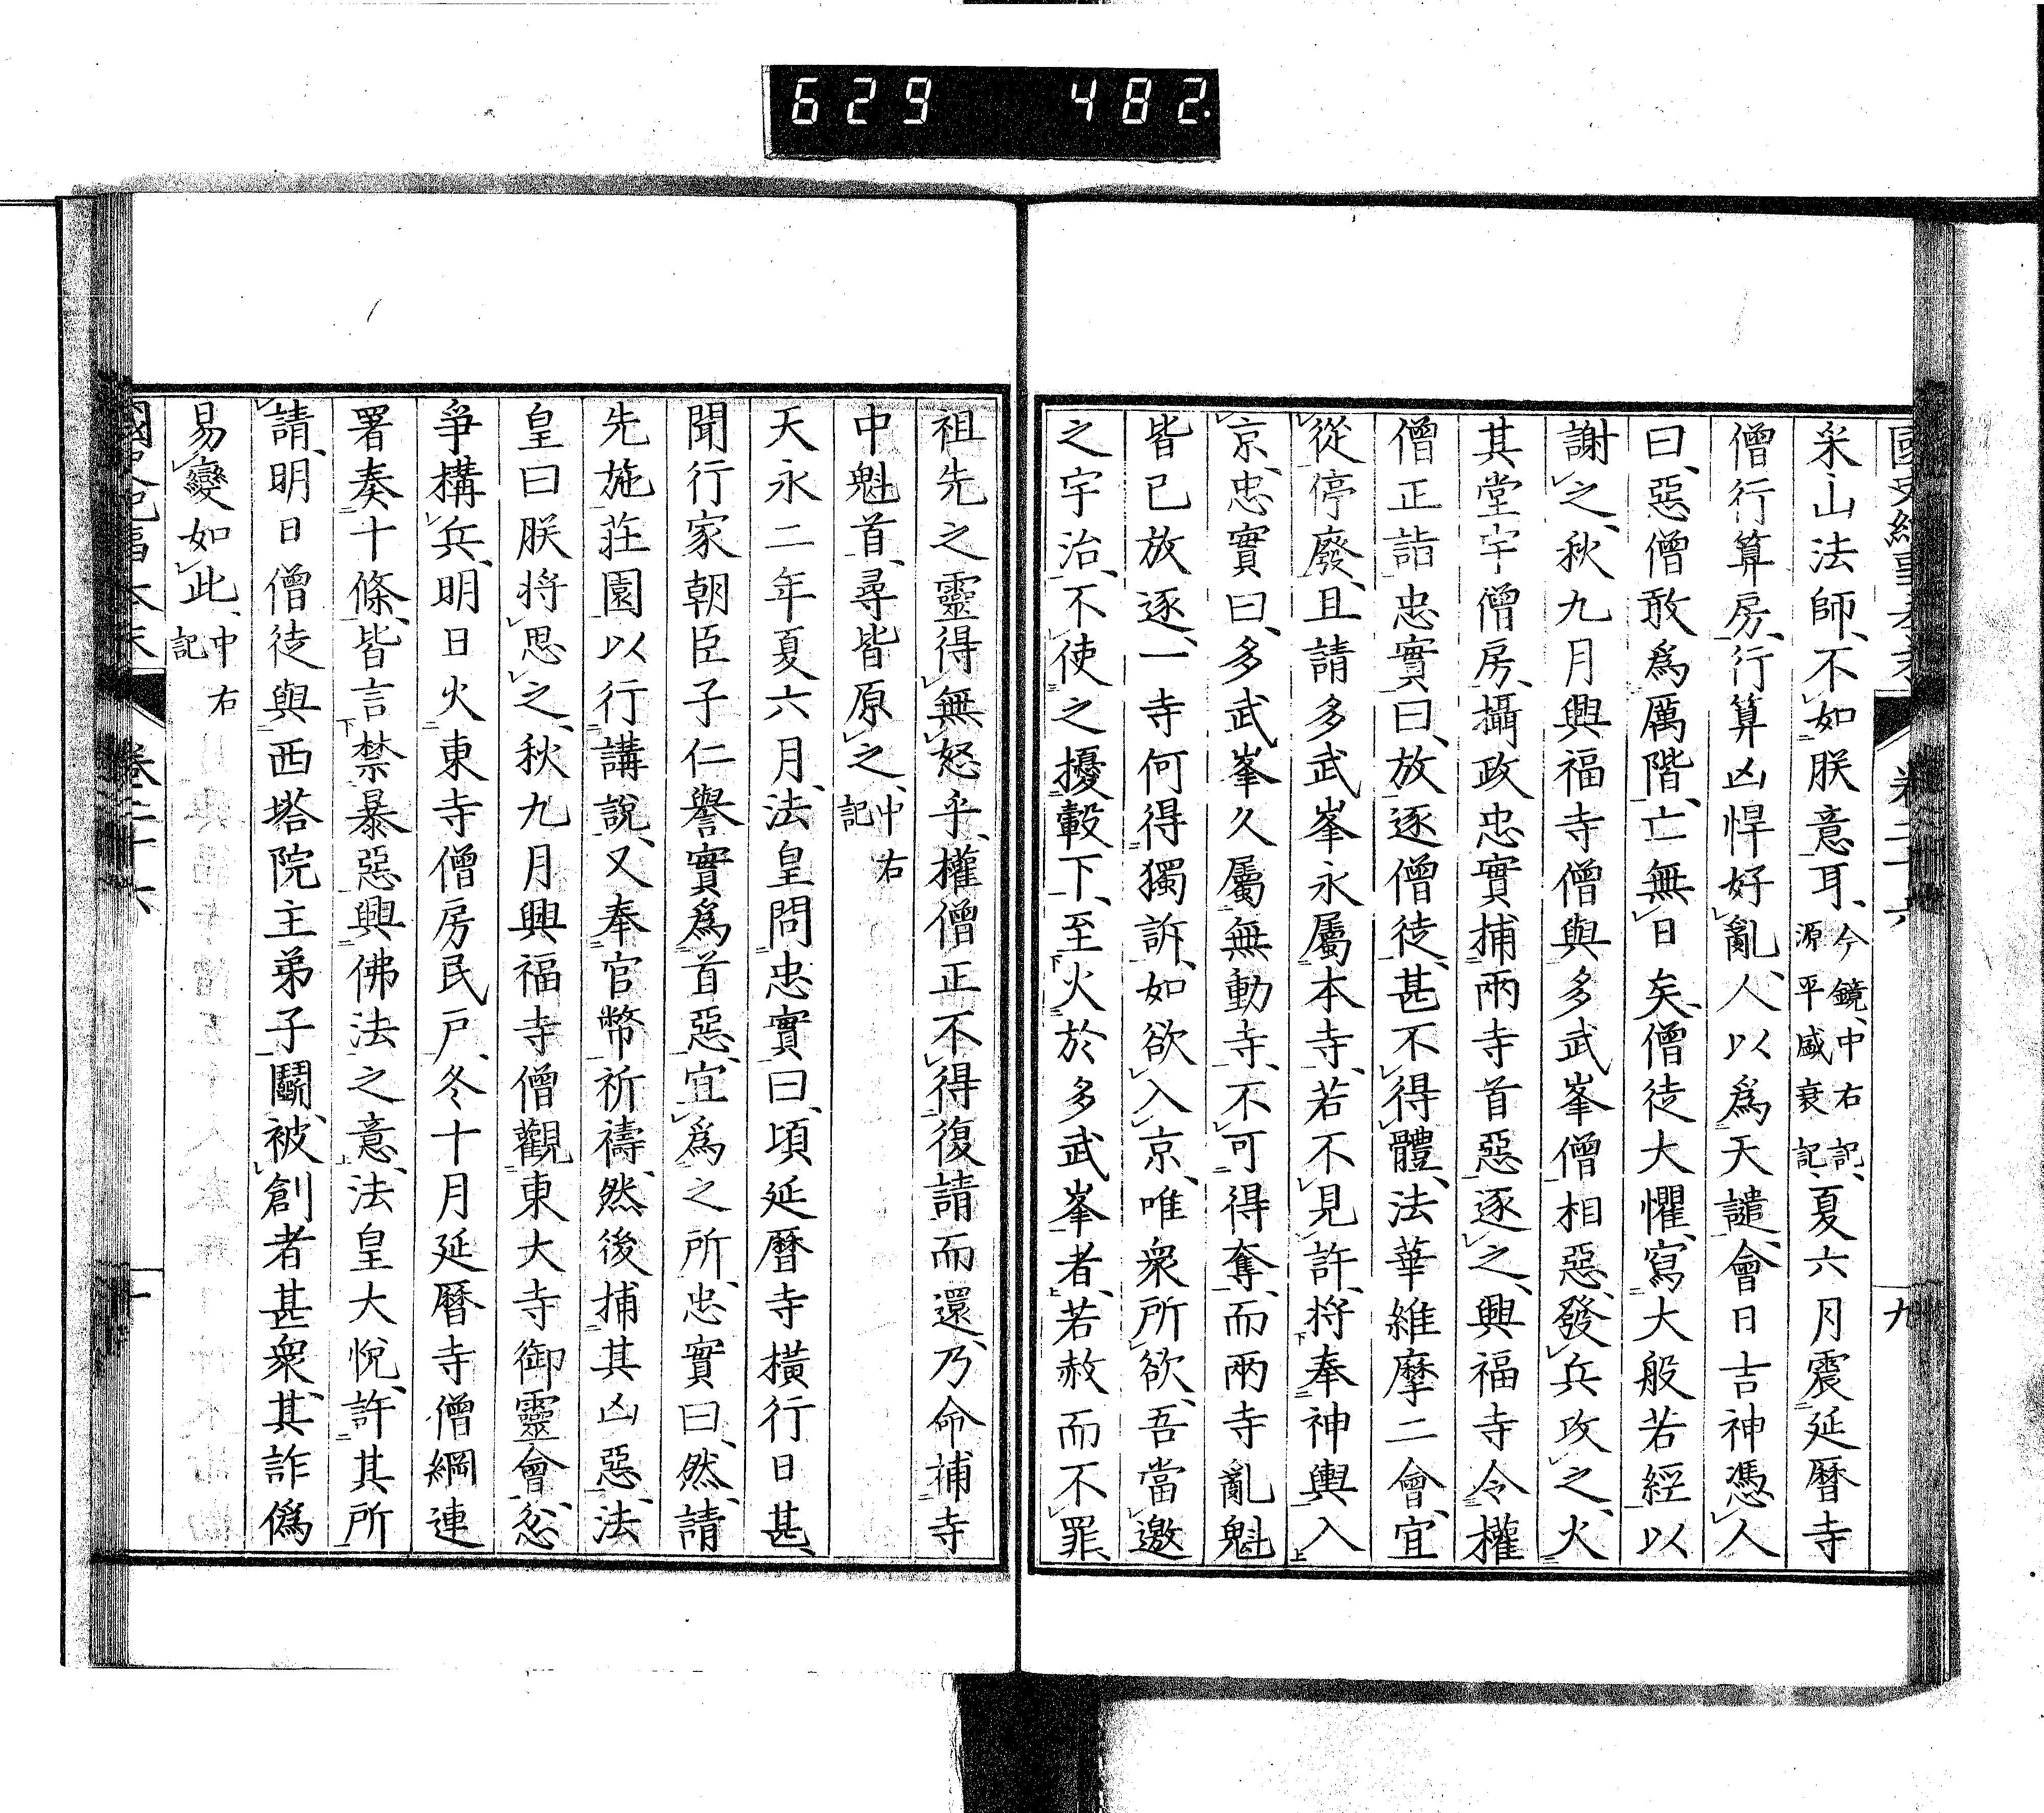 629 482.
九
采山法師、不如朕意耳、今鏡、中右記、源平盛衰記、夏六月震延曆寺
僧行算房、行算凶悍好亂、人以爲天譴、會日吉神憑人
曰、惡僧敢爲厲階、亡無日矣、僧徒大懼、寫大般若經以
謝之、秋九月興福寺僧與多武峯僧相惡、發兵攻之、火
其堂宇僧房、攝政忠實捕兩寺首惡、逐之、興福寺令權
僧正詣忠實曰、放逐僧徒、甚不得體、法華維摩二會、宜
從停廢、且請多武峯永屬本寺、若不見許、將奉神輿入
京、忠實曰、多武峯久屬無動寺、不可得奪、而兩寺亂魁
皆已放逐、一寺何得獨訴、如欲入京、唯衆所欲、吾當邀
之宇治、不使之擾轂下、至火於多武峯者、若赦而不罪、
祖先之靈得無怒乎、權僧正不得復請而還、乃命捕寺
中魁首、尋皆原之、中右記
天永二年夏六月、法皇問忠實曰、頃延曆寺橫行日甚、
聞行家朝臣子仁譽實爲首惡、宜爲之所、忠實曰、然、請
先施莊園以行講說、又奉官幣祈禱、然後捕其凶惡、法
皇曰朕將思之、秋九月興福寺僧觀東大寺御靈會、忿
爭構兵、明日火東寺僧房民戶、冬十月延曆寺僧綱連
署奏十條、皆言禁暴惡興佛法之意、法皇大悅、許其所
請、明日僧徒與西塔院主弟子鬪、被創者甚衆、其詐僞
易變如此、中右記